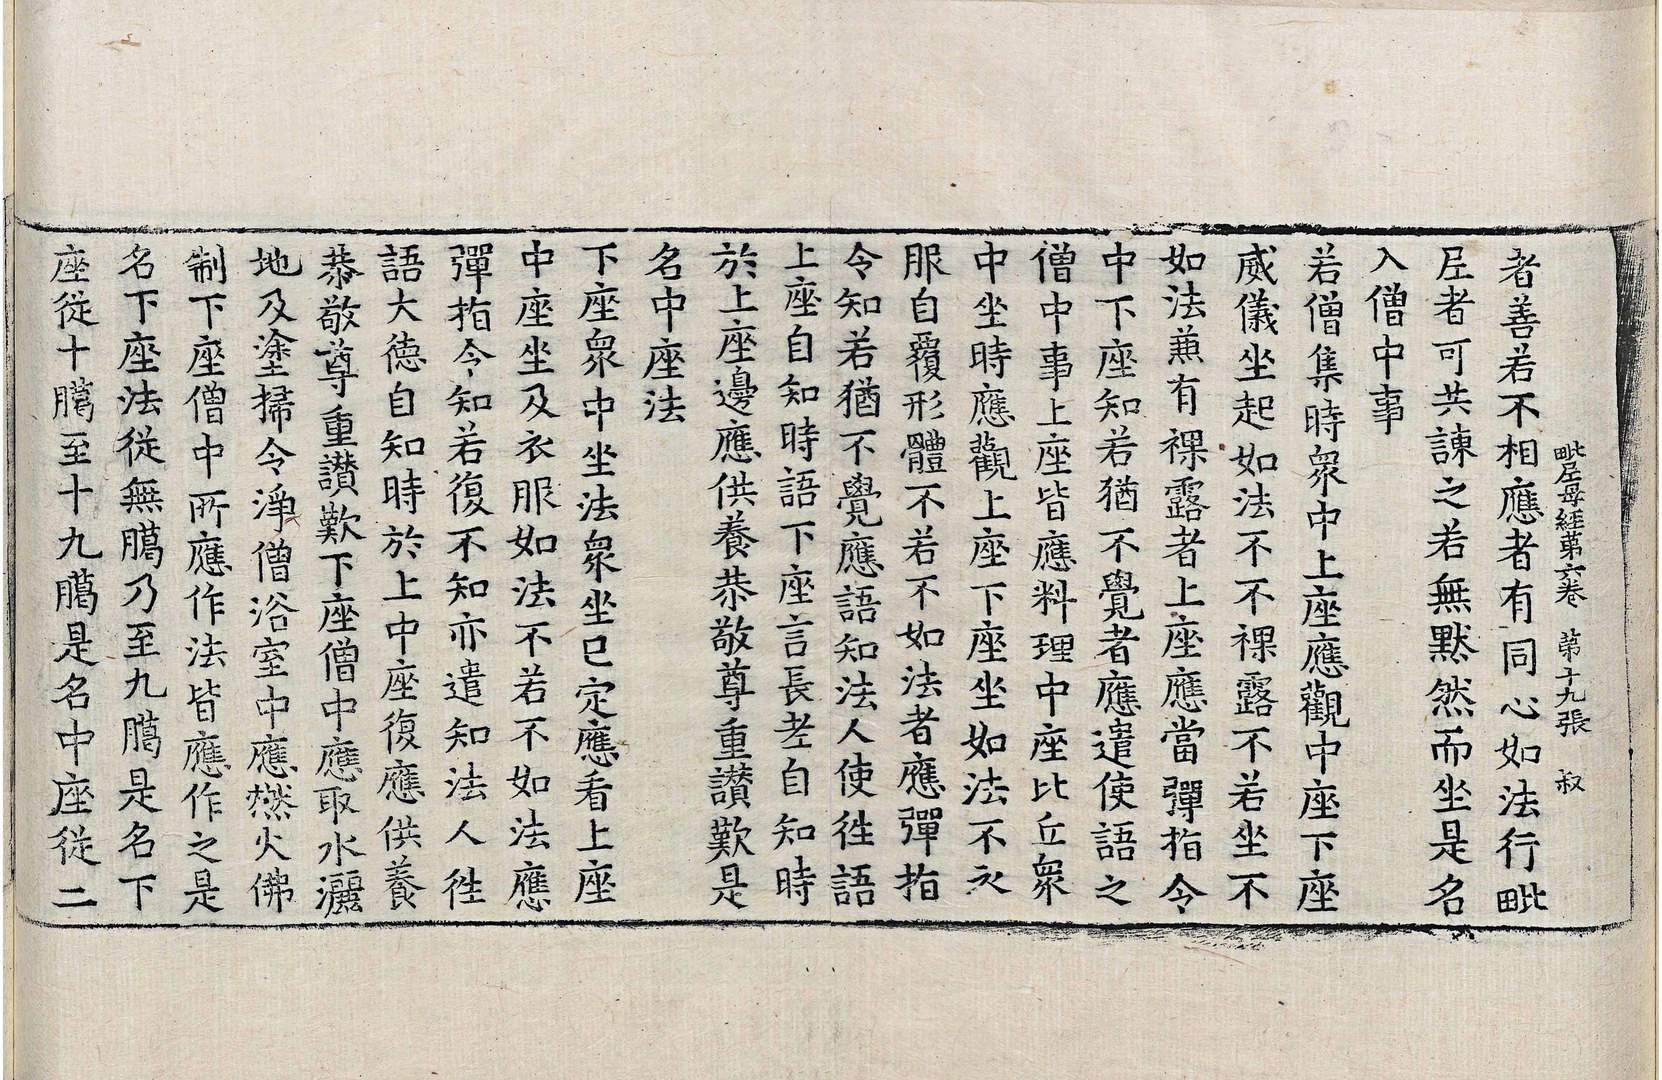 毗尼母經第六卷　第十九張　叔
者善若不相應者有同心如法行毗
尼者可共諫之若無默然而坐是名
入僧中事
若僧集時衆中上座應觀中座下座
威儀坐起如法不不裸露不若坐不
如法兼有裸露者上座應當彈指令
中下座知若猶不覺者應遣使語之
僧中事上座皆應料理中座比丘衆
中坐時應觀上座下座坐如法不衣
服自覆形體不若不如法者應彈指
令知若猶不覺應語知法人使往語
上座自知時語下座言長老自知時
於上座邊應供養恭敬尊重讃歎是
名中座法
下座衆中坐法衆坐已定應看上座
中座坐及衣服如法不若不如法應
彈指令知若復不知亦遣知法人往
語大德自知時於上中座復應供養
恭敬尊重讃歎下座僧中應取水灑
地及塗掃令淨僧浴室中應燃火佛
制下座僧中所應作法皆應作之是
名下座法從無臈乃至九臈是名下
座從十臈至十九臈是名中座從二